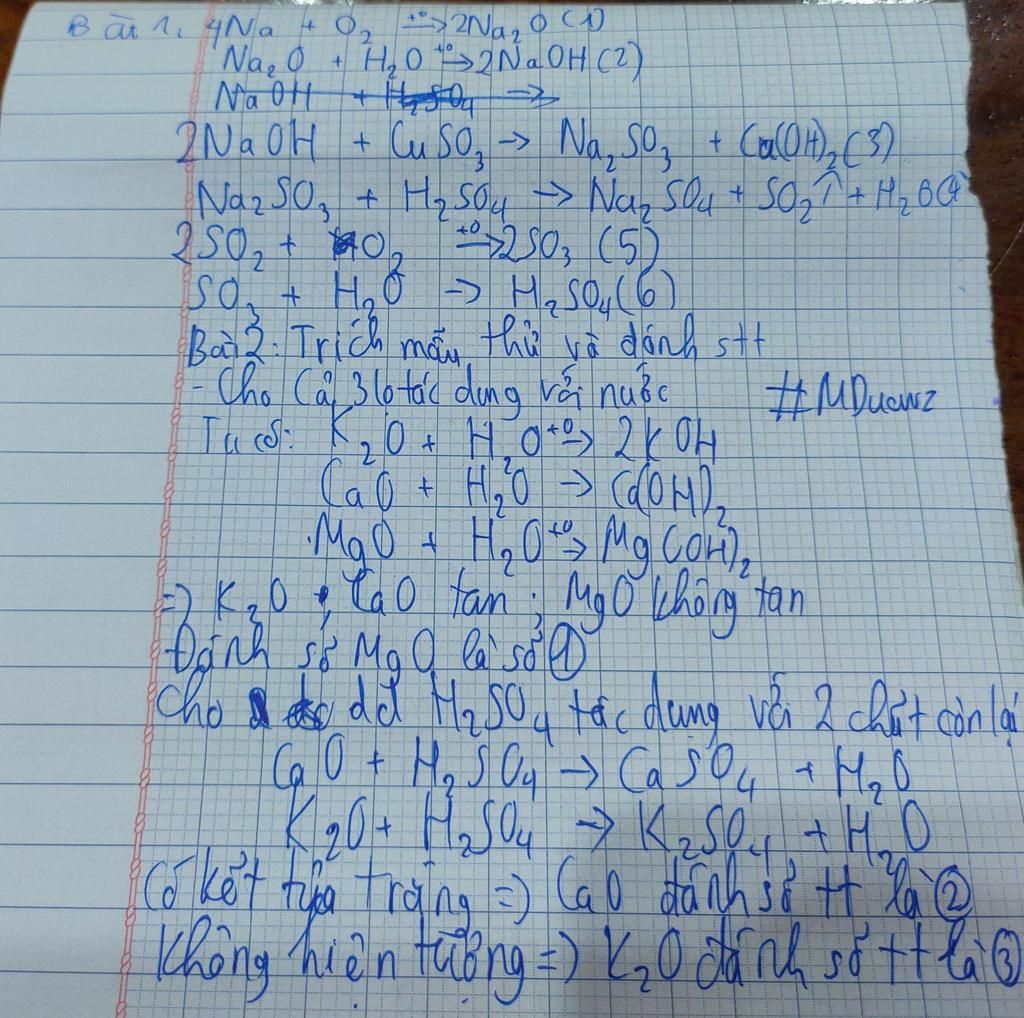 Bài 1. 4Na + O₂ →(t⁰) 2Na₂O (1)
Na₂O + H₂O →(t⁰) 2NaOH (2)
NaOH + H₂SO₄ →
2NaOH + CuSO₃ → Na₂SO₃ + Cu(OH)₂ (3)
Na₂SO₃ + H₂SO₄ → Na₂SO₄ + SO₂↑ + H₂O (4)
2SO₂ + O₂ →(t⁰) 2SO₃ (5)
SO₃ + H₂O → H₂SO₄ (6)
Bài 2: Trích mẫu thử và đánh stt
- Cho cả 3 lọ tác dụng với nước #MDuanz
Ta có: K₂O + H₂O →(t⁰) 2KOH
CaO + H₂O → Ca(OH)₂
MgO + H₂O →(t⁰) Mg(OH)₂
=) K₂O ; CaO tan ; MgO không tan
Đánh số MgO là số ①
Cho dd H₂SO₄ tác dụng với 2 chất còn lại
CaO + H₂SO₄ → CaSO₄ + H₂O
K₂O + H₂SO₄ → K₂SO₄ + H₂O
Có kết tủa trắng =) CaO đánh số tt là ②
Không hiện tượng =) K₂O đánh số tt là ③